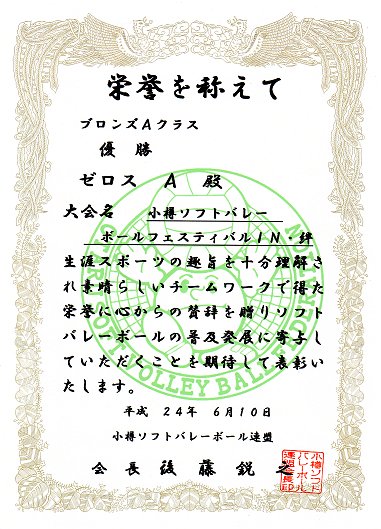 栄誉を称えて
ブロンズAクラス
優勝
ゼロス A 殿
大会名 小樽ソフトバレー
ボールフェスティバルIN・絆
生涯スポーツの趣旨を十分理解さ
れ素晴らしいチームワークで得た
栄誉に心からの賛辞を贈りソフト
バレーボールの普及発展に寄与し
ていただくことを期待して表彰い
たします。
平成 24年 6月10日
小樽ソフトバレーボール連盟
会長 後藤鋭之
小樽ソフト
バレーボール
連盟会長印
VOLLEY BALL